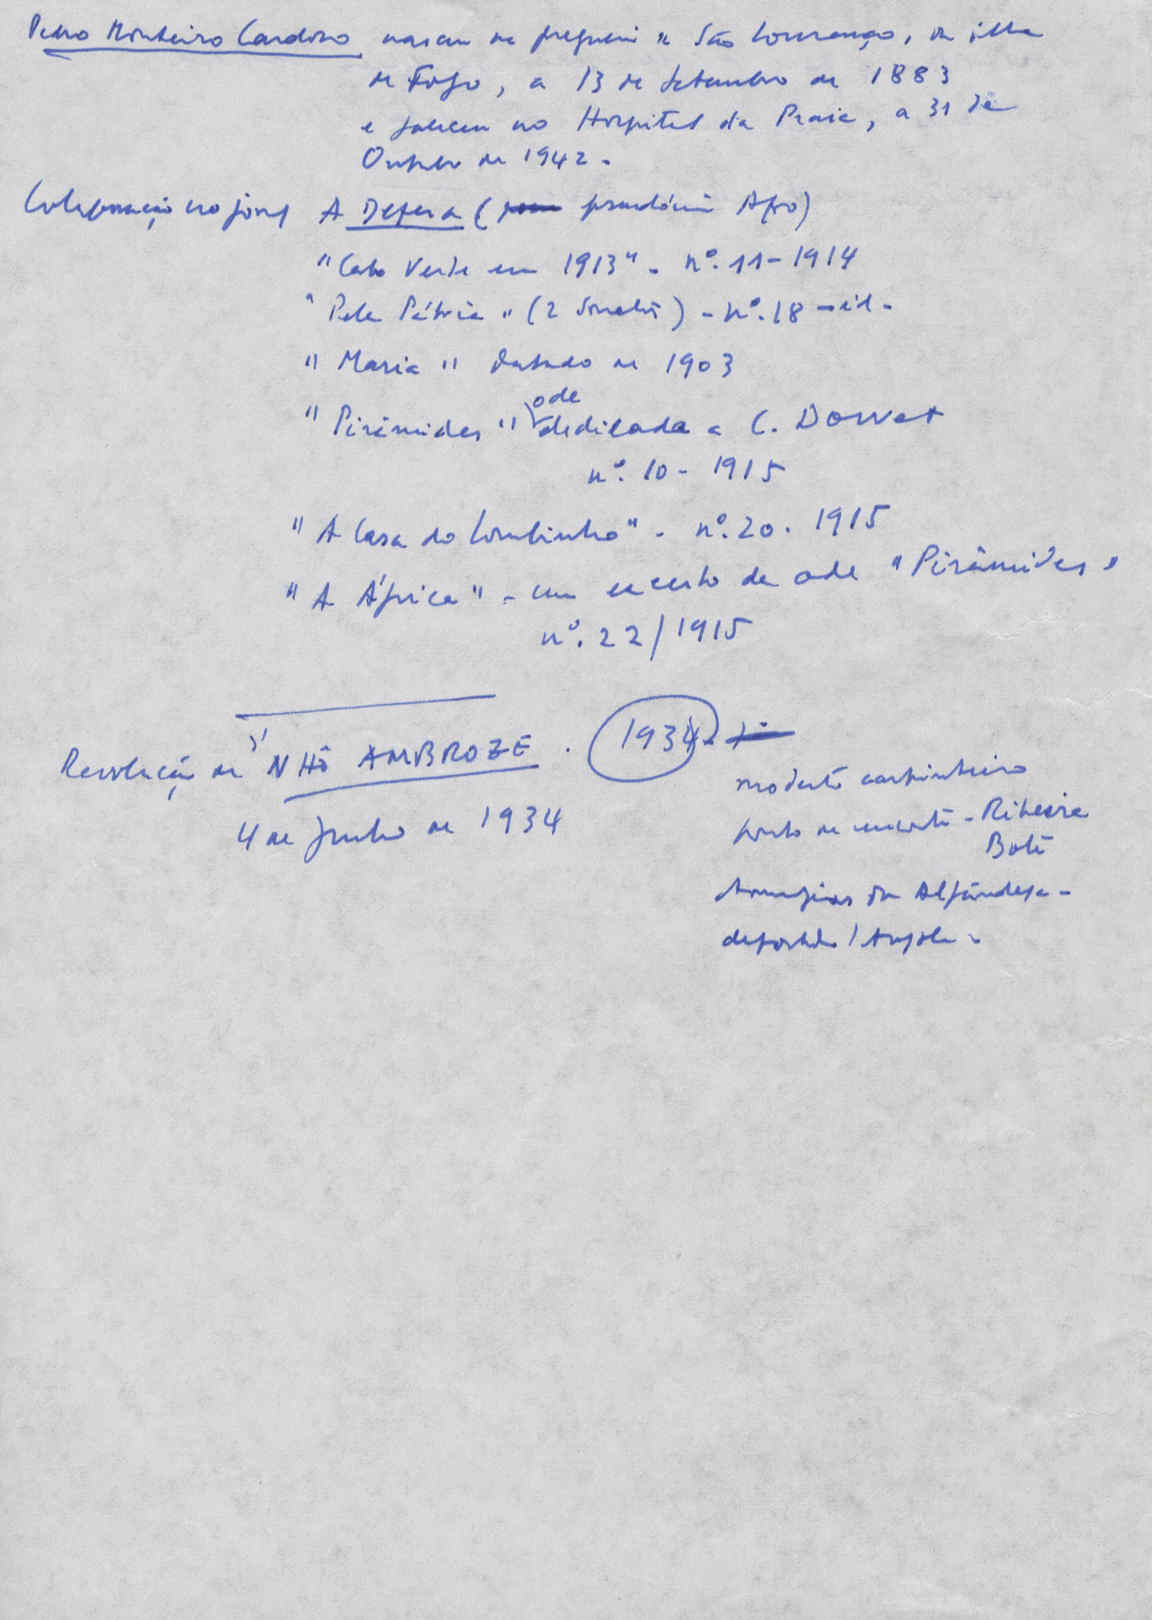 Pedro Monteiro Cardoso nasceu na freguesia de São Lourenço, da ilha
do Fogo, a 13 de Setembro de 1883
e faleceu no Hospital da Praia, a 31 de
Outubro de 1942.
Colaboração no jornal A Defesa (pseudónimo Afro)
"Cabo Verde em 1913" - nº. 11 - 1914
"Pela Pátria" (2 Sonetos) - nº. 18 - id.
"Maria" datado de 1903
ode
"Pirâmides" dedicada a C. Dorvet
nº. 10 - 1915
"A Casa do Lombinho" - nº. 20. 1915
"A África" - um excerto da ode "Pirâmides"
nº. 22/1915
Revolução de "NHÔ AMBROZE. 1934.
modesto carpinteiro
4 de Junho de 1934
ponto de encontro - Ribeira
Bote
Armazéns da Alfândega -
deportado / Angola.